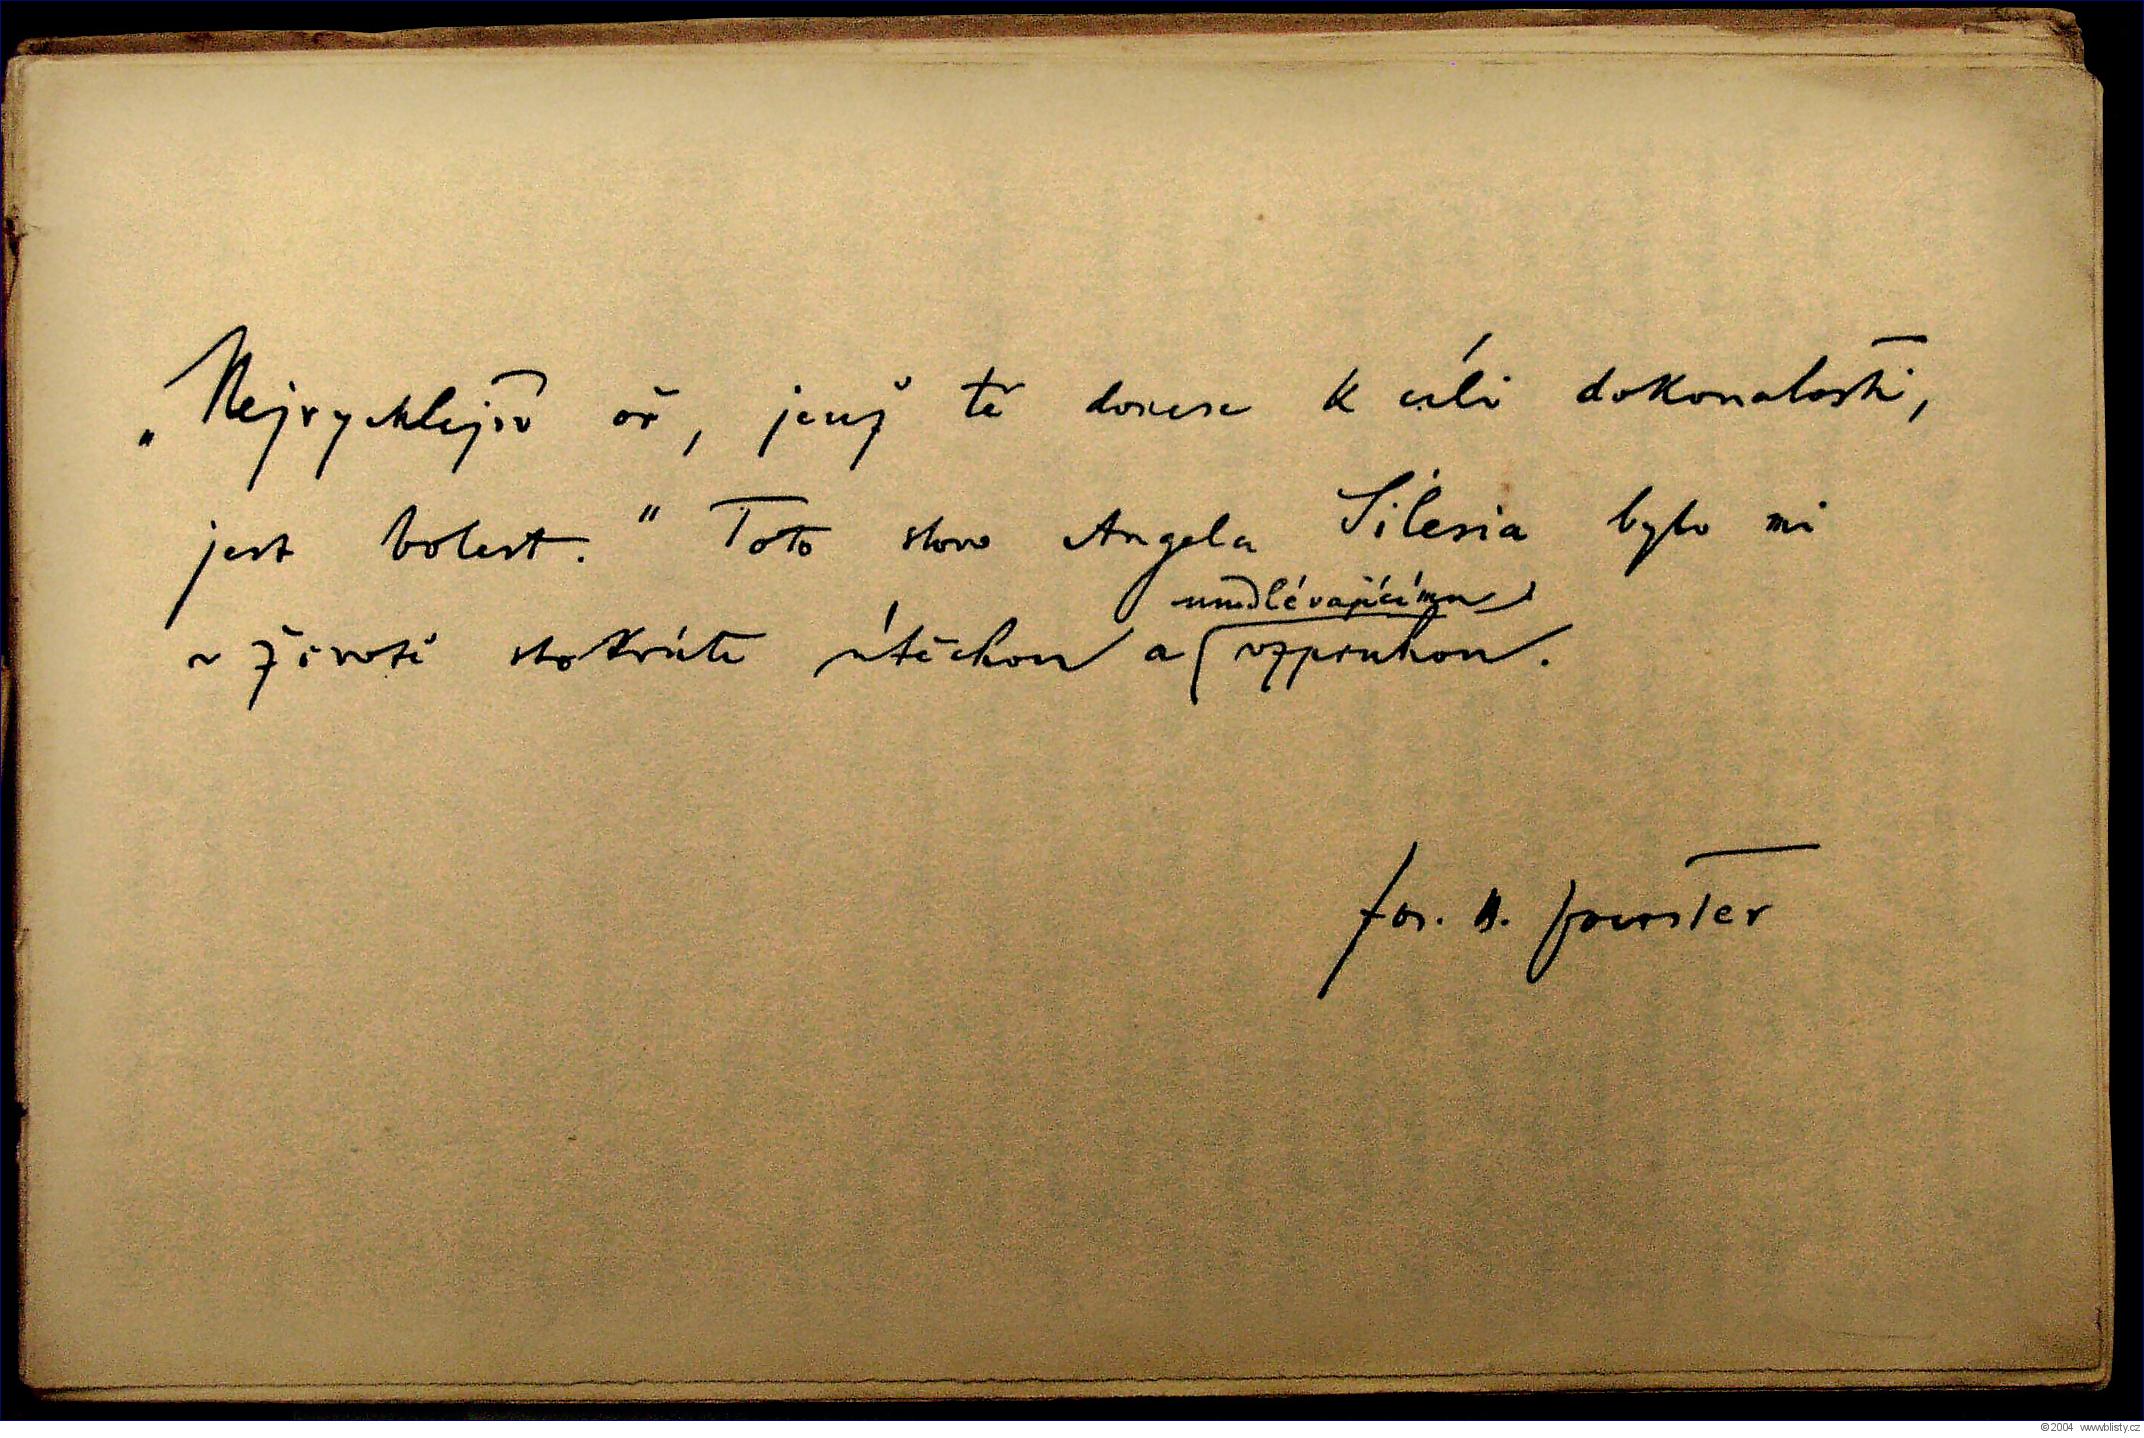 „Nejrychlejší oř, jenž tě donese k cíli dokonalosti,
jest bolest." Toto slovo Angela Silesia bylo mi
umdlévajícímu
v životě stokráte útěchou a vzpruhou.
Jos. B. Foerster
©2004 www.blisty.cz